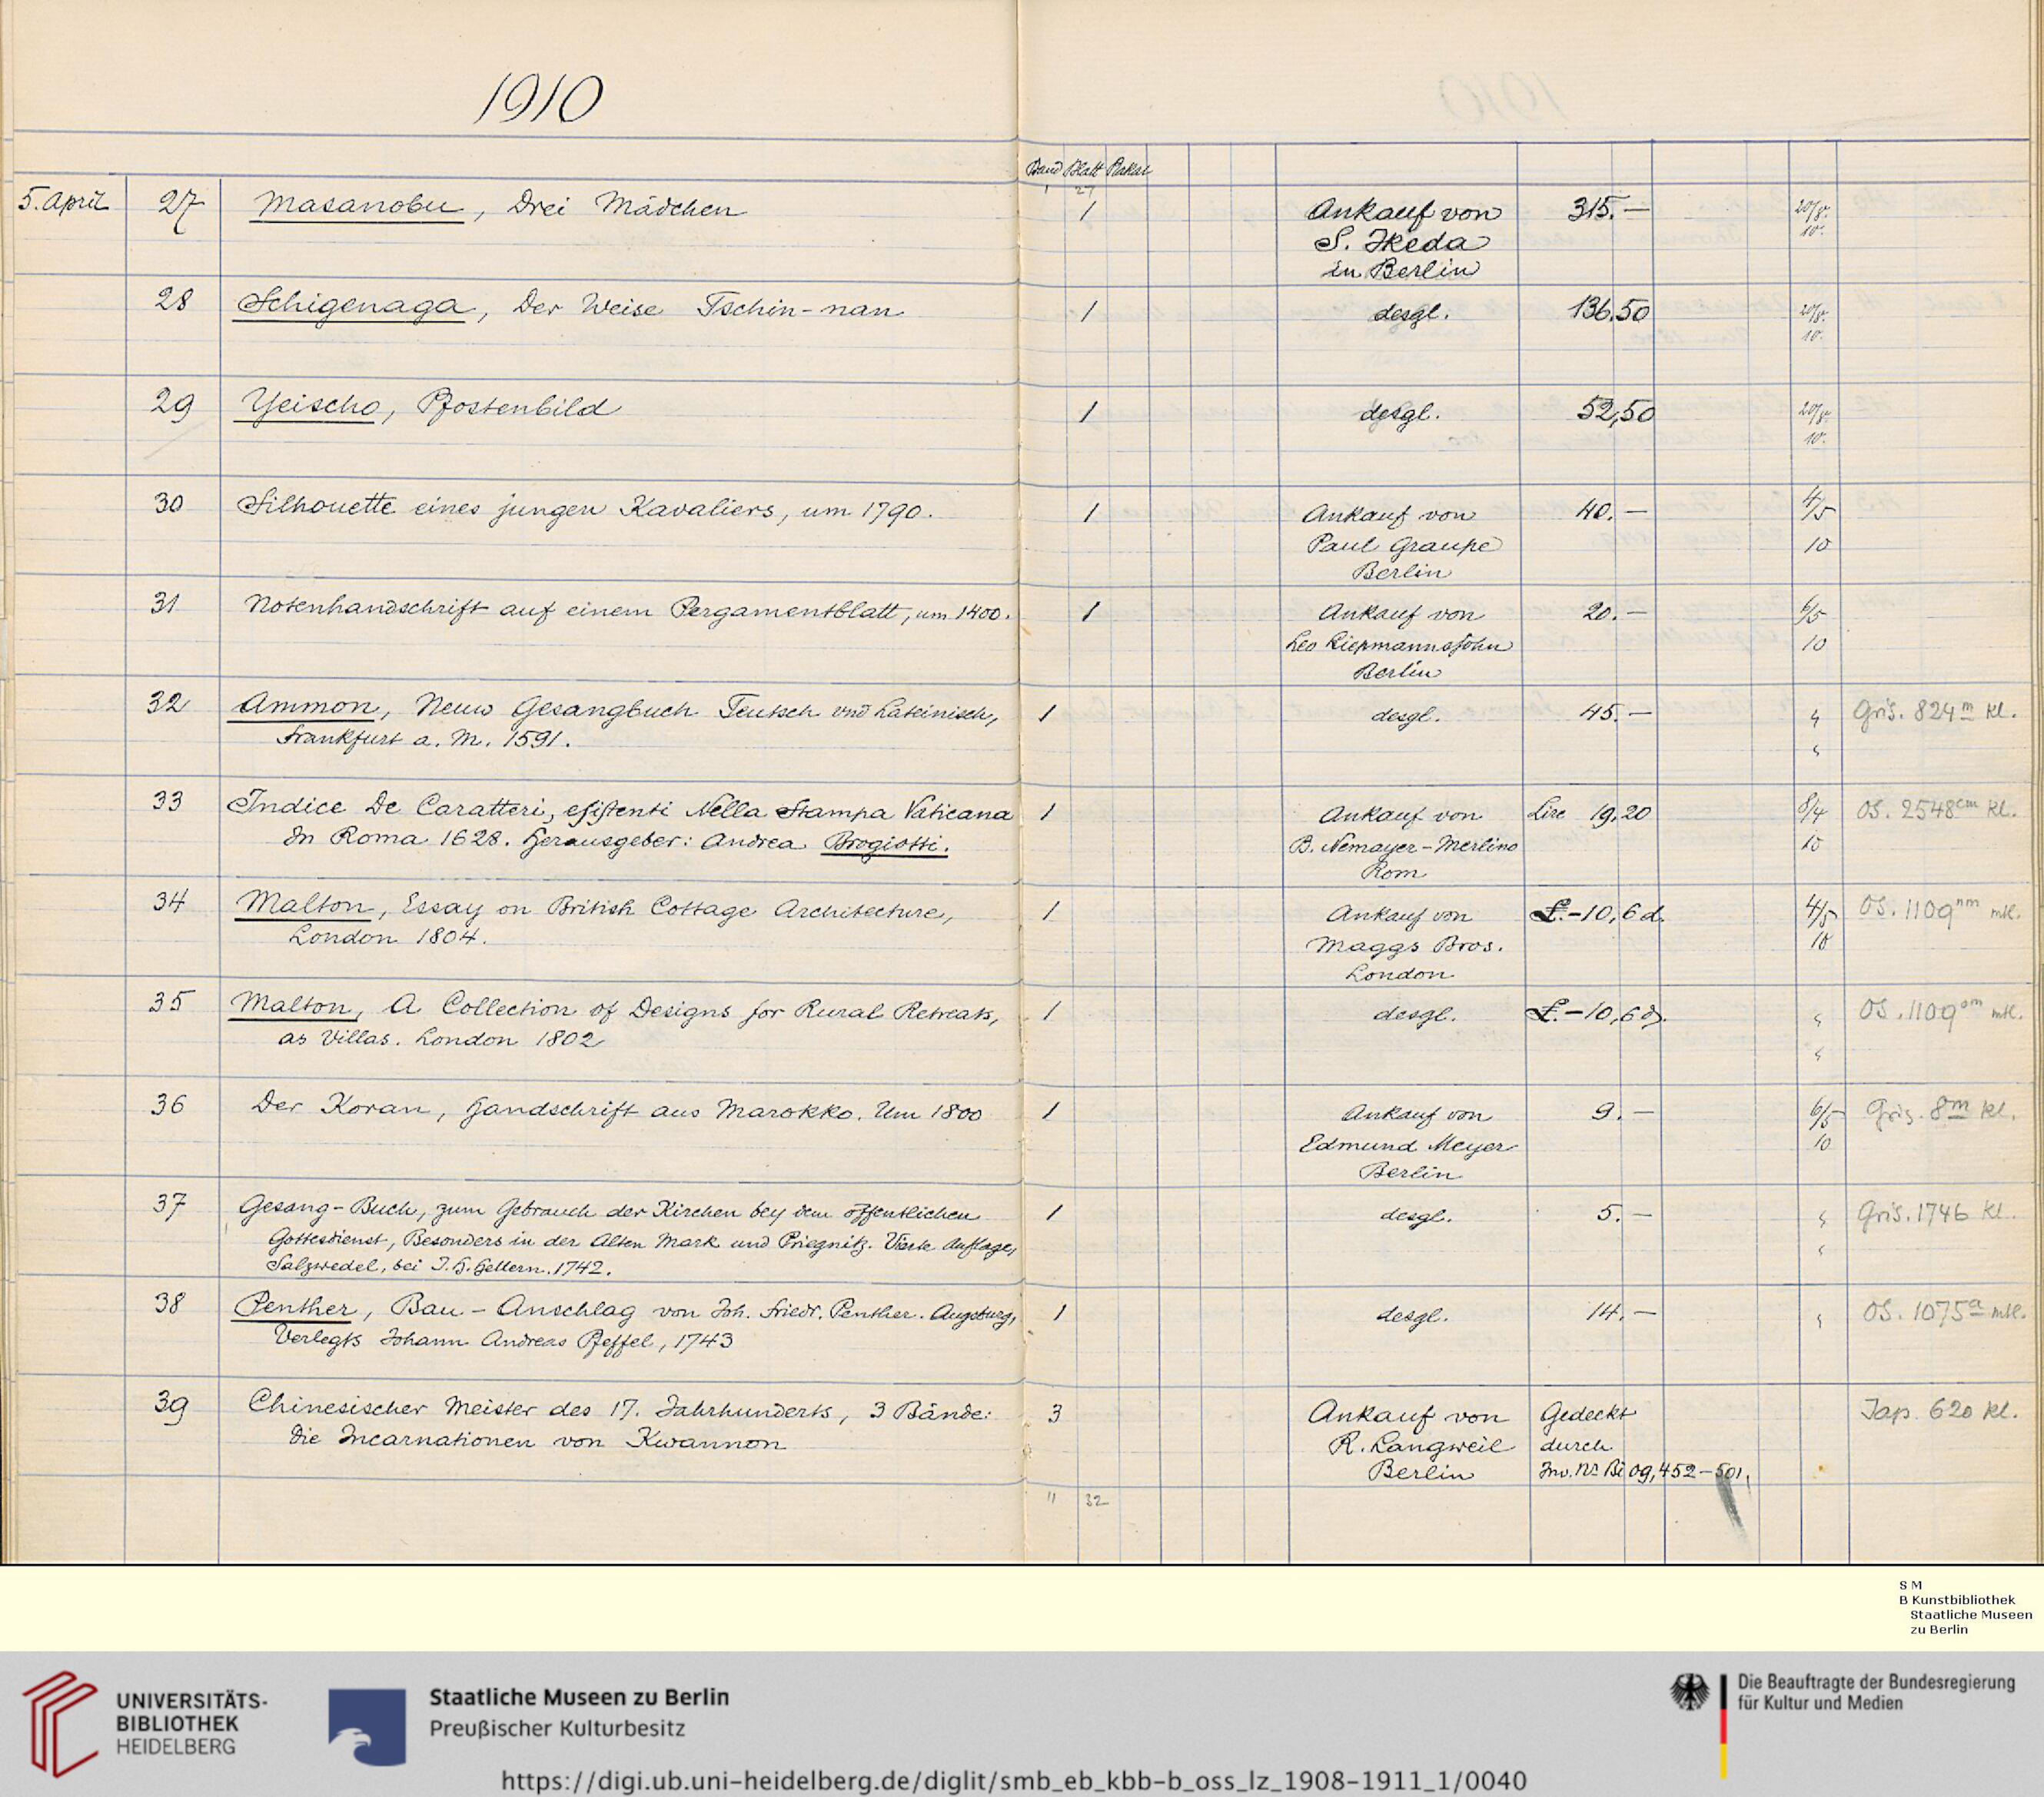 1910
Band Blatt Plakat
1 27
5. April 27 Masanobu, Drei Mädchen 1 Ankauf von 315.— 20/8.
S. Ikeda 10.
in Berlin
28 Schigenaga, Der Weise Tschin-nan 1 desgl. 136,50 20/8.
10.
29 Yeischo, Pfostenbild 1 desgl. 52,50 20/8.
10.
30 Silhouette eines jungen Kavaliers, um 1790. 1 Ankauf von 40.— 4/5
Paul Graupe 10
Berlin
31 Notenhandschrift auf einem Pergamentblatt, um 1400. 1 Ankauf von 20.— 6/5
Leo Liepmannssohn 10
Berlin
32 Ammon, Neuw Gesangbuch Teutsch vnd Lateinisch, 1 desgl. 45.— Gris. 824 m kl.
Frankfurt a. M. 1591.
33 Indice De Caratteri, esistenti Nella Stampa Vaticana 1 Ankauf von Lire 19,20 8/4 OS. 2548 cm kl.
In Roma 1628. Herausgeber: Andrea Brogiotti. B. Nemayer-Merlino 10
Rom
34 Malton, Essay on British Cottage Architecture, 1 Ankauf von £.-10,6 d. 4/5 OS. 1109 nm mtl.
London 1804. Maggs Bros. 10
London
35 Malton, A Collection of Designs for Rural Retreats, 1 desgl. £.-10,6 d. OS. 1109 om mtl.
as Villas. London 1802
36 Der Koran, Handschrift aus Marokko. Um 1800 1 Ankauf von 9.— 6/5 Gris. 8 m kl.
Edmund Meyer 10
Berlin
37 Gesang-Buch, zum Gebrauch der Kirchen bey dem öffentlichen 1 desgl. 5.— Gris. 1746 kl.
Gottesdienst, Besonders in der Alten Mark und Priegnitz. Vierte Auflage,
Salzwedel, bei J. H. 1742.
38 Penther, Bau-Anschlag von Joh. Friedr. Penther. Augsburg, 1 desgl. 14.— OS. 1075 a mtl.
Verlegts Johann Andreas Pfeffel, 1743
39 Chinesischer Meister des 17. Jahrhunderts, 3 Bände: 3 Ankauf von Gedeckt Jap. 620 kl.
Die Incarnationen von Kwannon R. Langweil durch
Berlin Inv. Nr. Bi 09,452-501.
11 32
S M
B Kunstbibliothek
Staatliche Museen
zu Berlin
UNIVERSITÄTS-
BIBLIOTHEK
HEIDELBERG
Staatliche Museen zu Berlin
Preußischer Kulturbesitz
Die Beauftragte der Bundesregierung
für Kultur und Medien
https://digi.ub.uni-heidelberg.de/diglit/smb_eb_kbb-b_oss_lz_1908-1911_1/0040